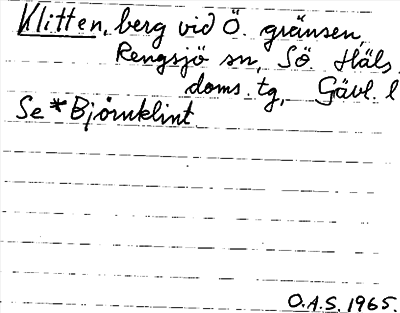 Klitten, berg vid Ö. gränsen,
Rengsjö sn, Sö. Häls.
doms. tg, Gävl. l
Se *Björnklint
O.A.S. 1965.